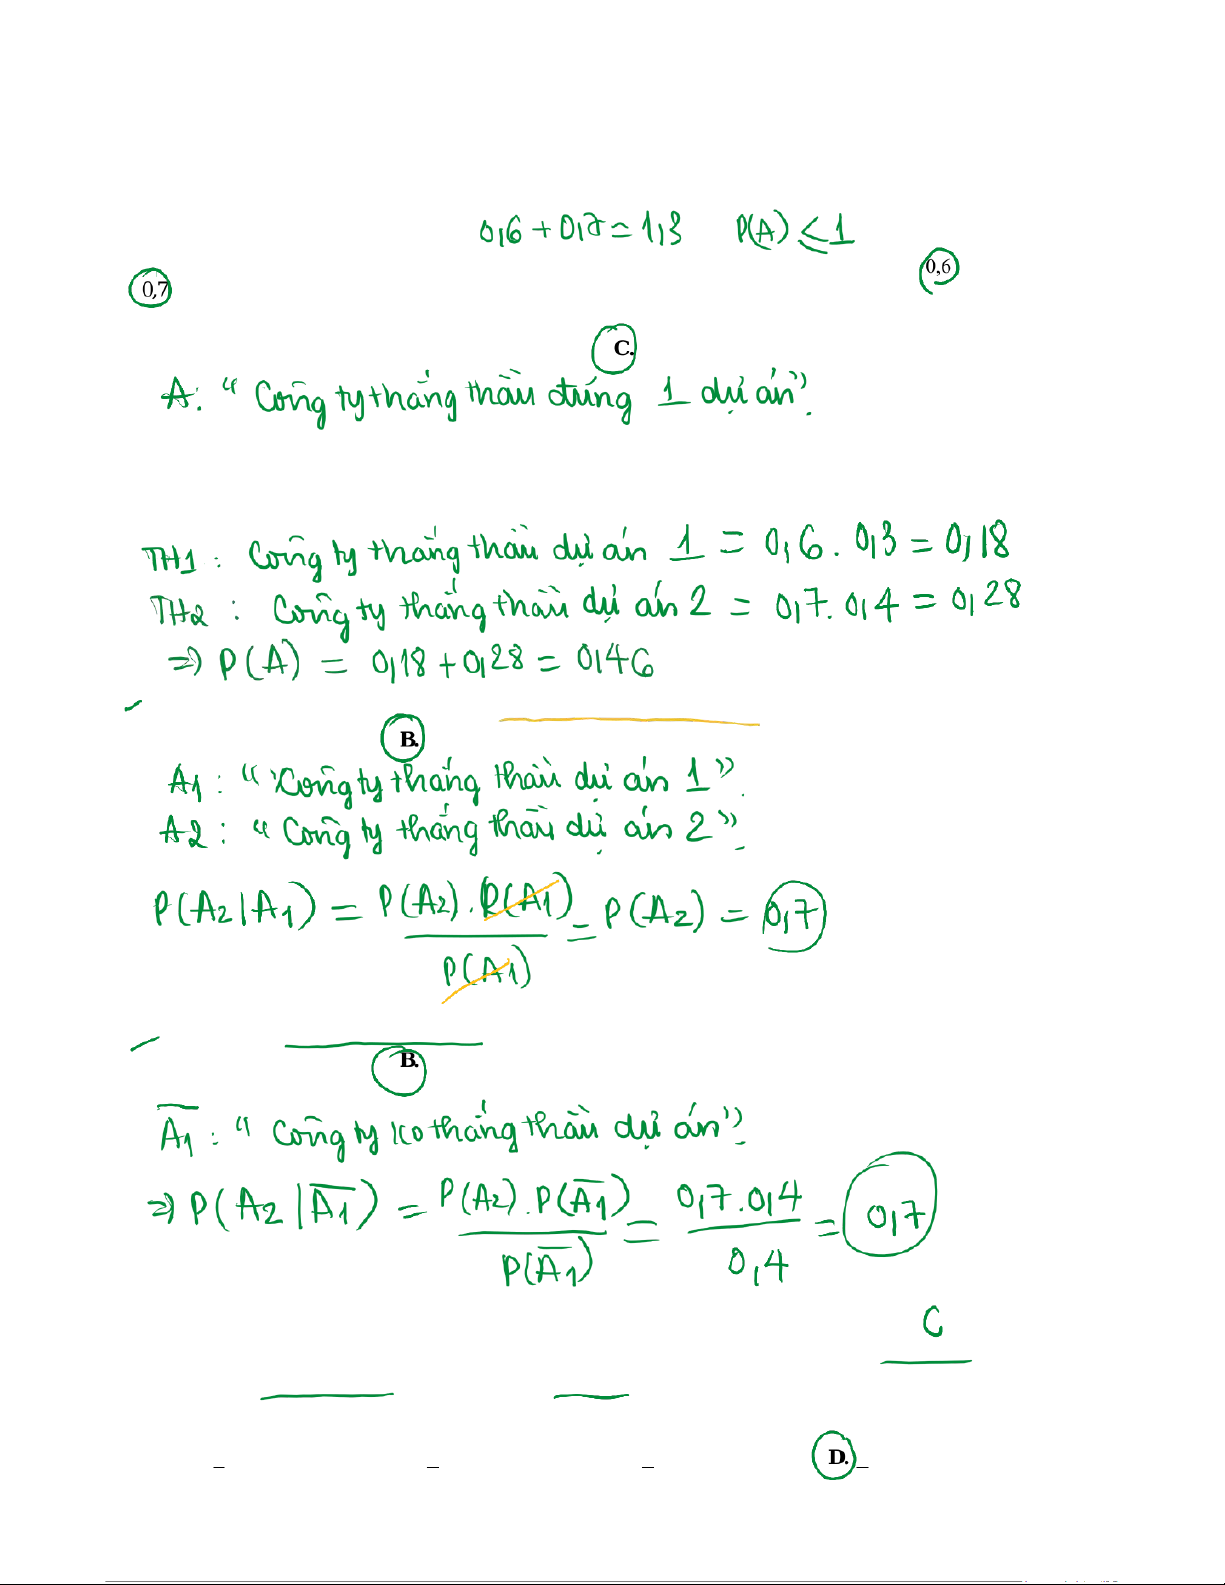 0,6 + 0,7 = 1,3 P(A) ≤ 1
0,6
0,7
C.
A: “Công ty thắng thầu đúng 1 dự án”.
TH1 : Công ty thắng thầu dự án 1 = 0,6 . 0,3 = 0,18
TH2 : Công ty thắng thầu dự án 2 = 0,7 . 0,4 = 0,28
⇒ P(A) = 0,18 + 0,28 = 0,46
B.
A1 : “Công ty thắng thầu dự án 1”.
A2 : “Công ty thắng thầu dự án 2”.
P(A2|A1) = P(A2) . P(A1) / P(A1) = P(A2) = 0,7
B.
A̅1̅ : “Công ty ko thắng thầu dự án”.
⇒ P(A2|A̅1̅) = P(A2) . P(A̅1̅) / P(A̅1̅) = 0,7 . 0,4 / 0,4 = 0,7
C
D.